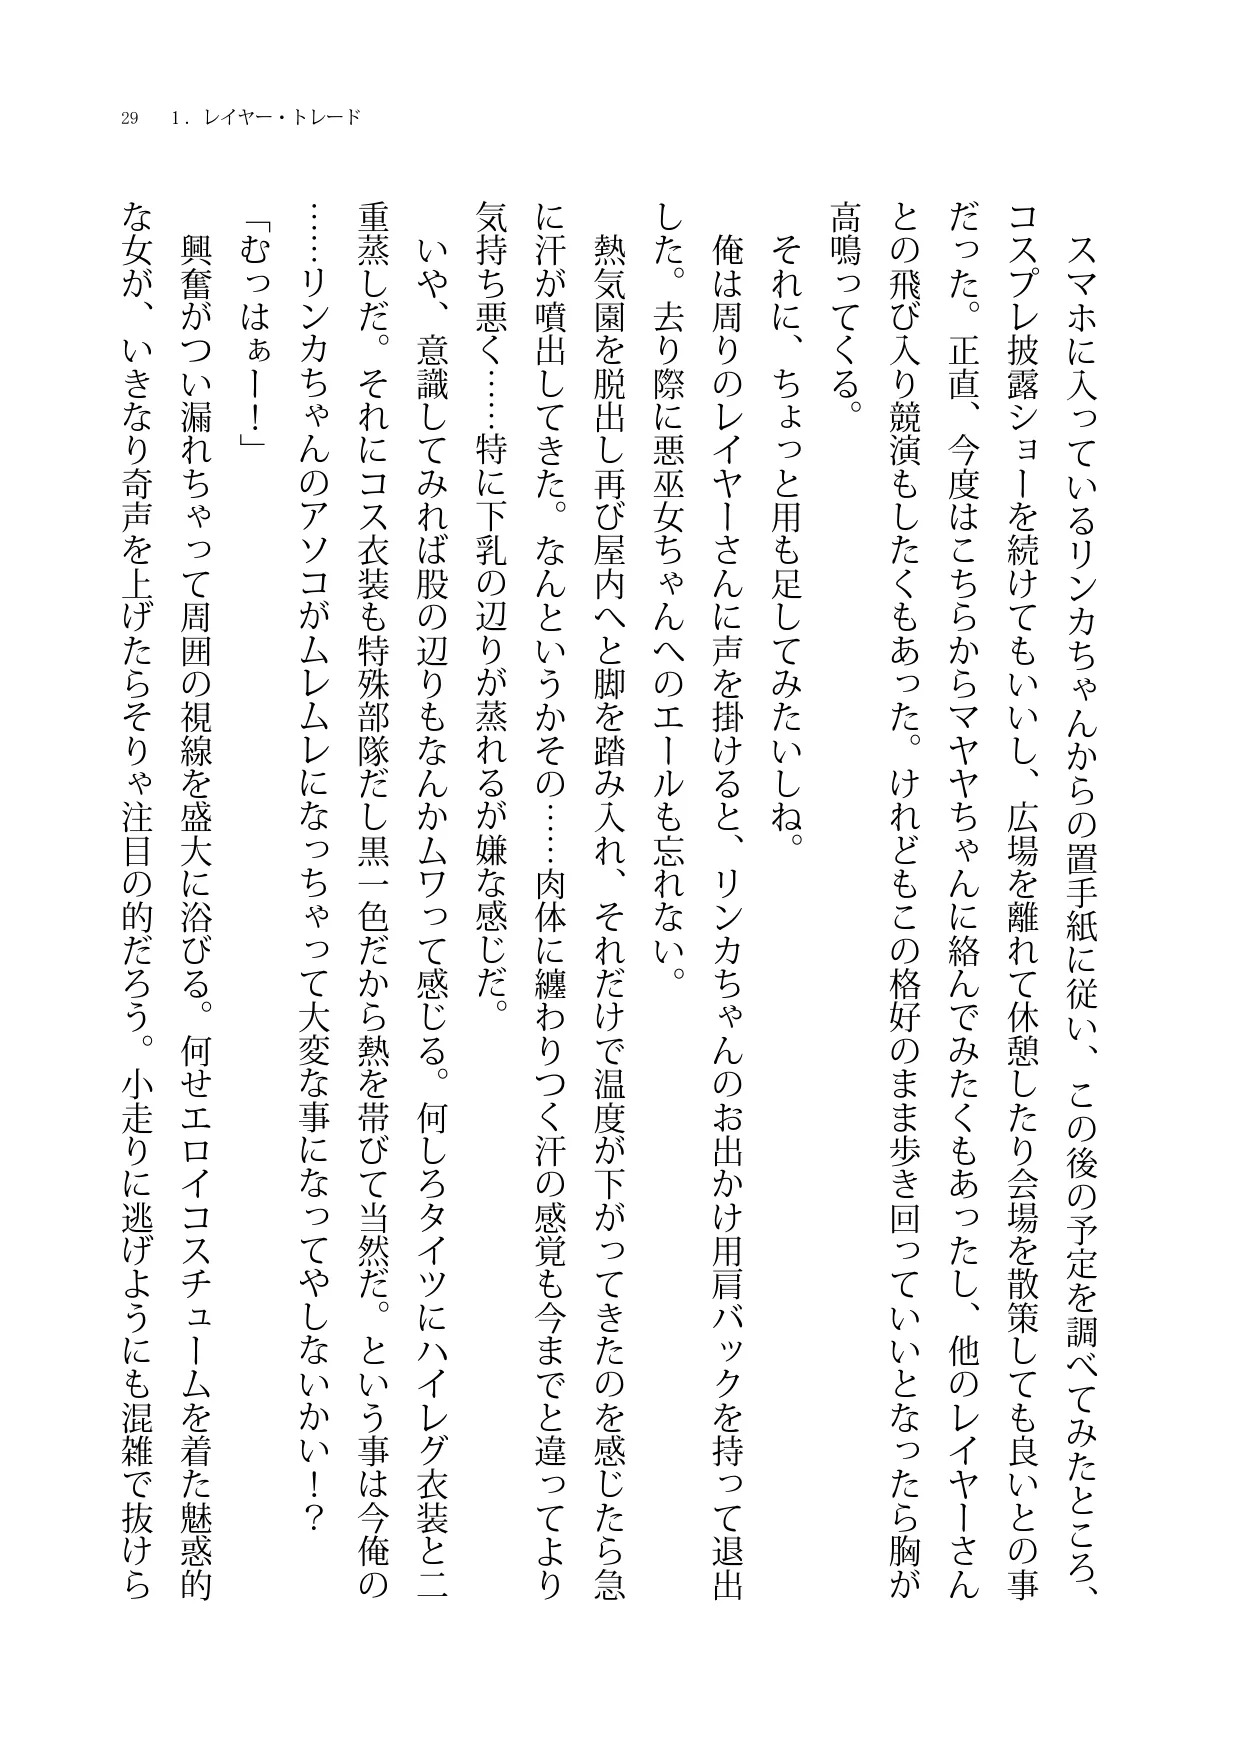 29　1．レイヤー・トレード
　スマホに入っているリンカちゃんからの置手紙に従い、この後の予定を調べてみたところ、
コスプレ披露ショーを続けてもいいし、広場を離れて休憩したり会場を散策しても良いとの事
だった。正直、今度はこちらからマヤヤちゃんに絡んでみたくもあったし、他のレイヤーさん
との飛び入り競演もしたくもあった。けれどもこの格好のまま歩き回っていいとなったら胸が
高鳴ってくる。
　それに、ちょっと用も足してみたいしね。
　俺は周りのレイヤーさんに声を掛けると、リンカちゃんのお出かけ用肩バックを持って退出
した。去り際に悪巫女ちゃんへのエールも忘れない。
　熱気園を脱出し再び屋内へと脚を踏み入れ、それだけで温度が下がってきたのを感じたら急
に汗が噴出してきた。なんというかその……肉体に纏わりつく汗の感覚も今までと違ってより
気持ち悪く……特に下乳の辺りが蒸れるが嫌な感じだ。
　いや、意識してみれば股の辺りもなんかムワって感じる。何しろタイツにハイレグ衣装と二
重蒸しだ。それにコス衣装も特殊部隊だし黒一色だから熱を帯びて当然だ。という事は今俺の
……リンカちゃんのアソコがムレムレになっちゃって大変な事になってやしないかい！？
「むっはぁー！」
　興奮がつい漏れちゃって周囲の視線を盛大に浴びる。何せエロイコスチュームを着た魅惑的
な女が、いきなり奇声を上げたらそりゃ注目の的だろう。小走りに逃げようにも混雑で抜けら